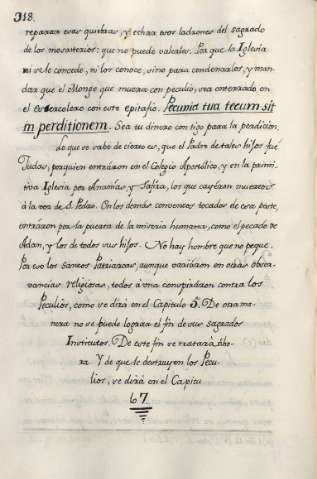 318.
reparar esas quiebras, y echar esos ladrones del sagrado
de los monasterios: que no puedo valerles. Por que la Iglesia
ni se le concede, ni los conoce, sino para condenarlos, y man-
dar que el Monge que muera con peculio, sea enterrado en
el estercolero con este epitafio. Pecunia tua tecum sit
in perditionem. Sea tu dinero contigo para la perdicion,
do que se sabe de cierto es, que el Padre de tales hijos fue
Judas, por quien entraron en el Colegio Apostólico, y en la primi-
tiva Iglesia por Ananías y Safira, los que cayeron muertos
á la voz de S. Pedro. En los demás conventos tocados de esa peste,
entraron por la puerta de la miseria humana, como el pecado de
Adan, y los de todos sus hijos. No hay hombre que no peque.
Por eso los Santos Patriarcas, aunque variaron en otras obser-
vancias religiosas, todos á una conspiraron contra los
Peculios, como se dirá en el Capitulo 5. De otra ma-
nera no se puede lograr el fin de sus sagrados
Institutos. De este fin se tratará aho-
ra Y de que le destruyen los Pecu-
lios, se dirá en el Capitu
67